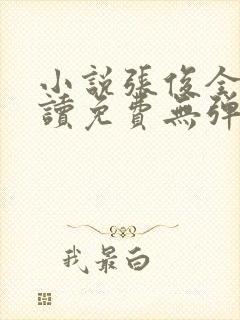 小說張俊全
讀免費無彈
我最白